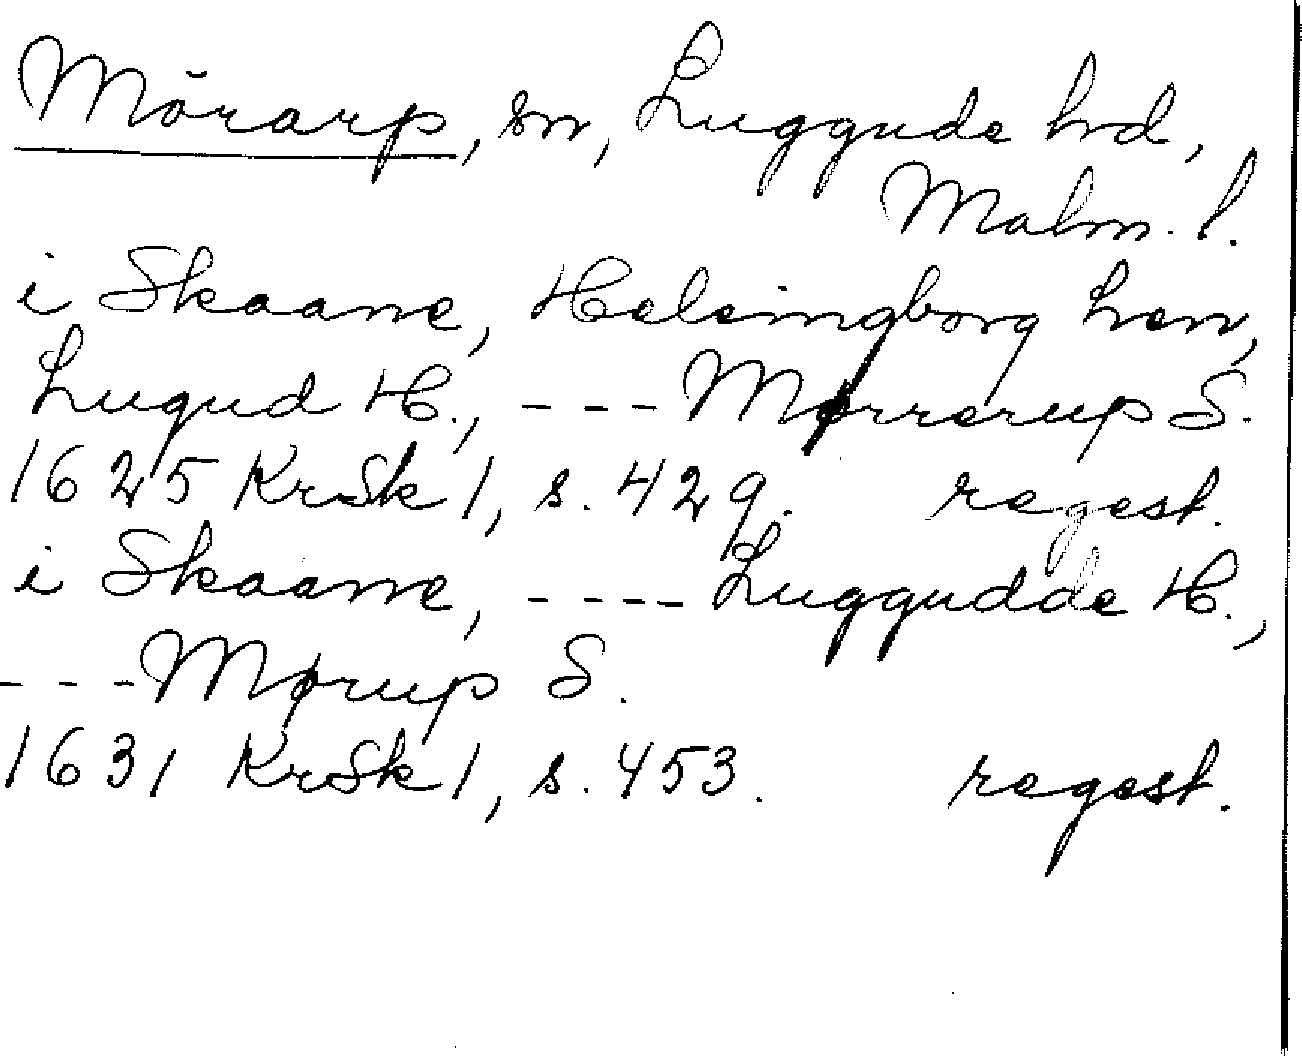 Mörarp, sn, Luggude hd,
Malm. l.
i Skaane, Helsingborg Len,
Lugud H., --- Mørrerup S.
1625 KrSk 1, s. 429. regest.
i Skaane, ---- Luggudde H.,
--- Mørup S.
1631 KrSk 1, s. 453. regest.